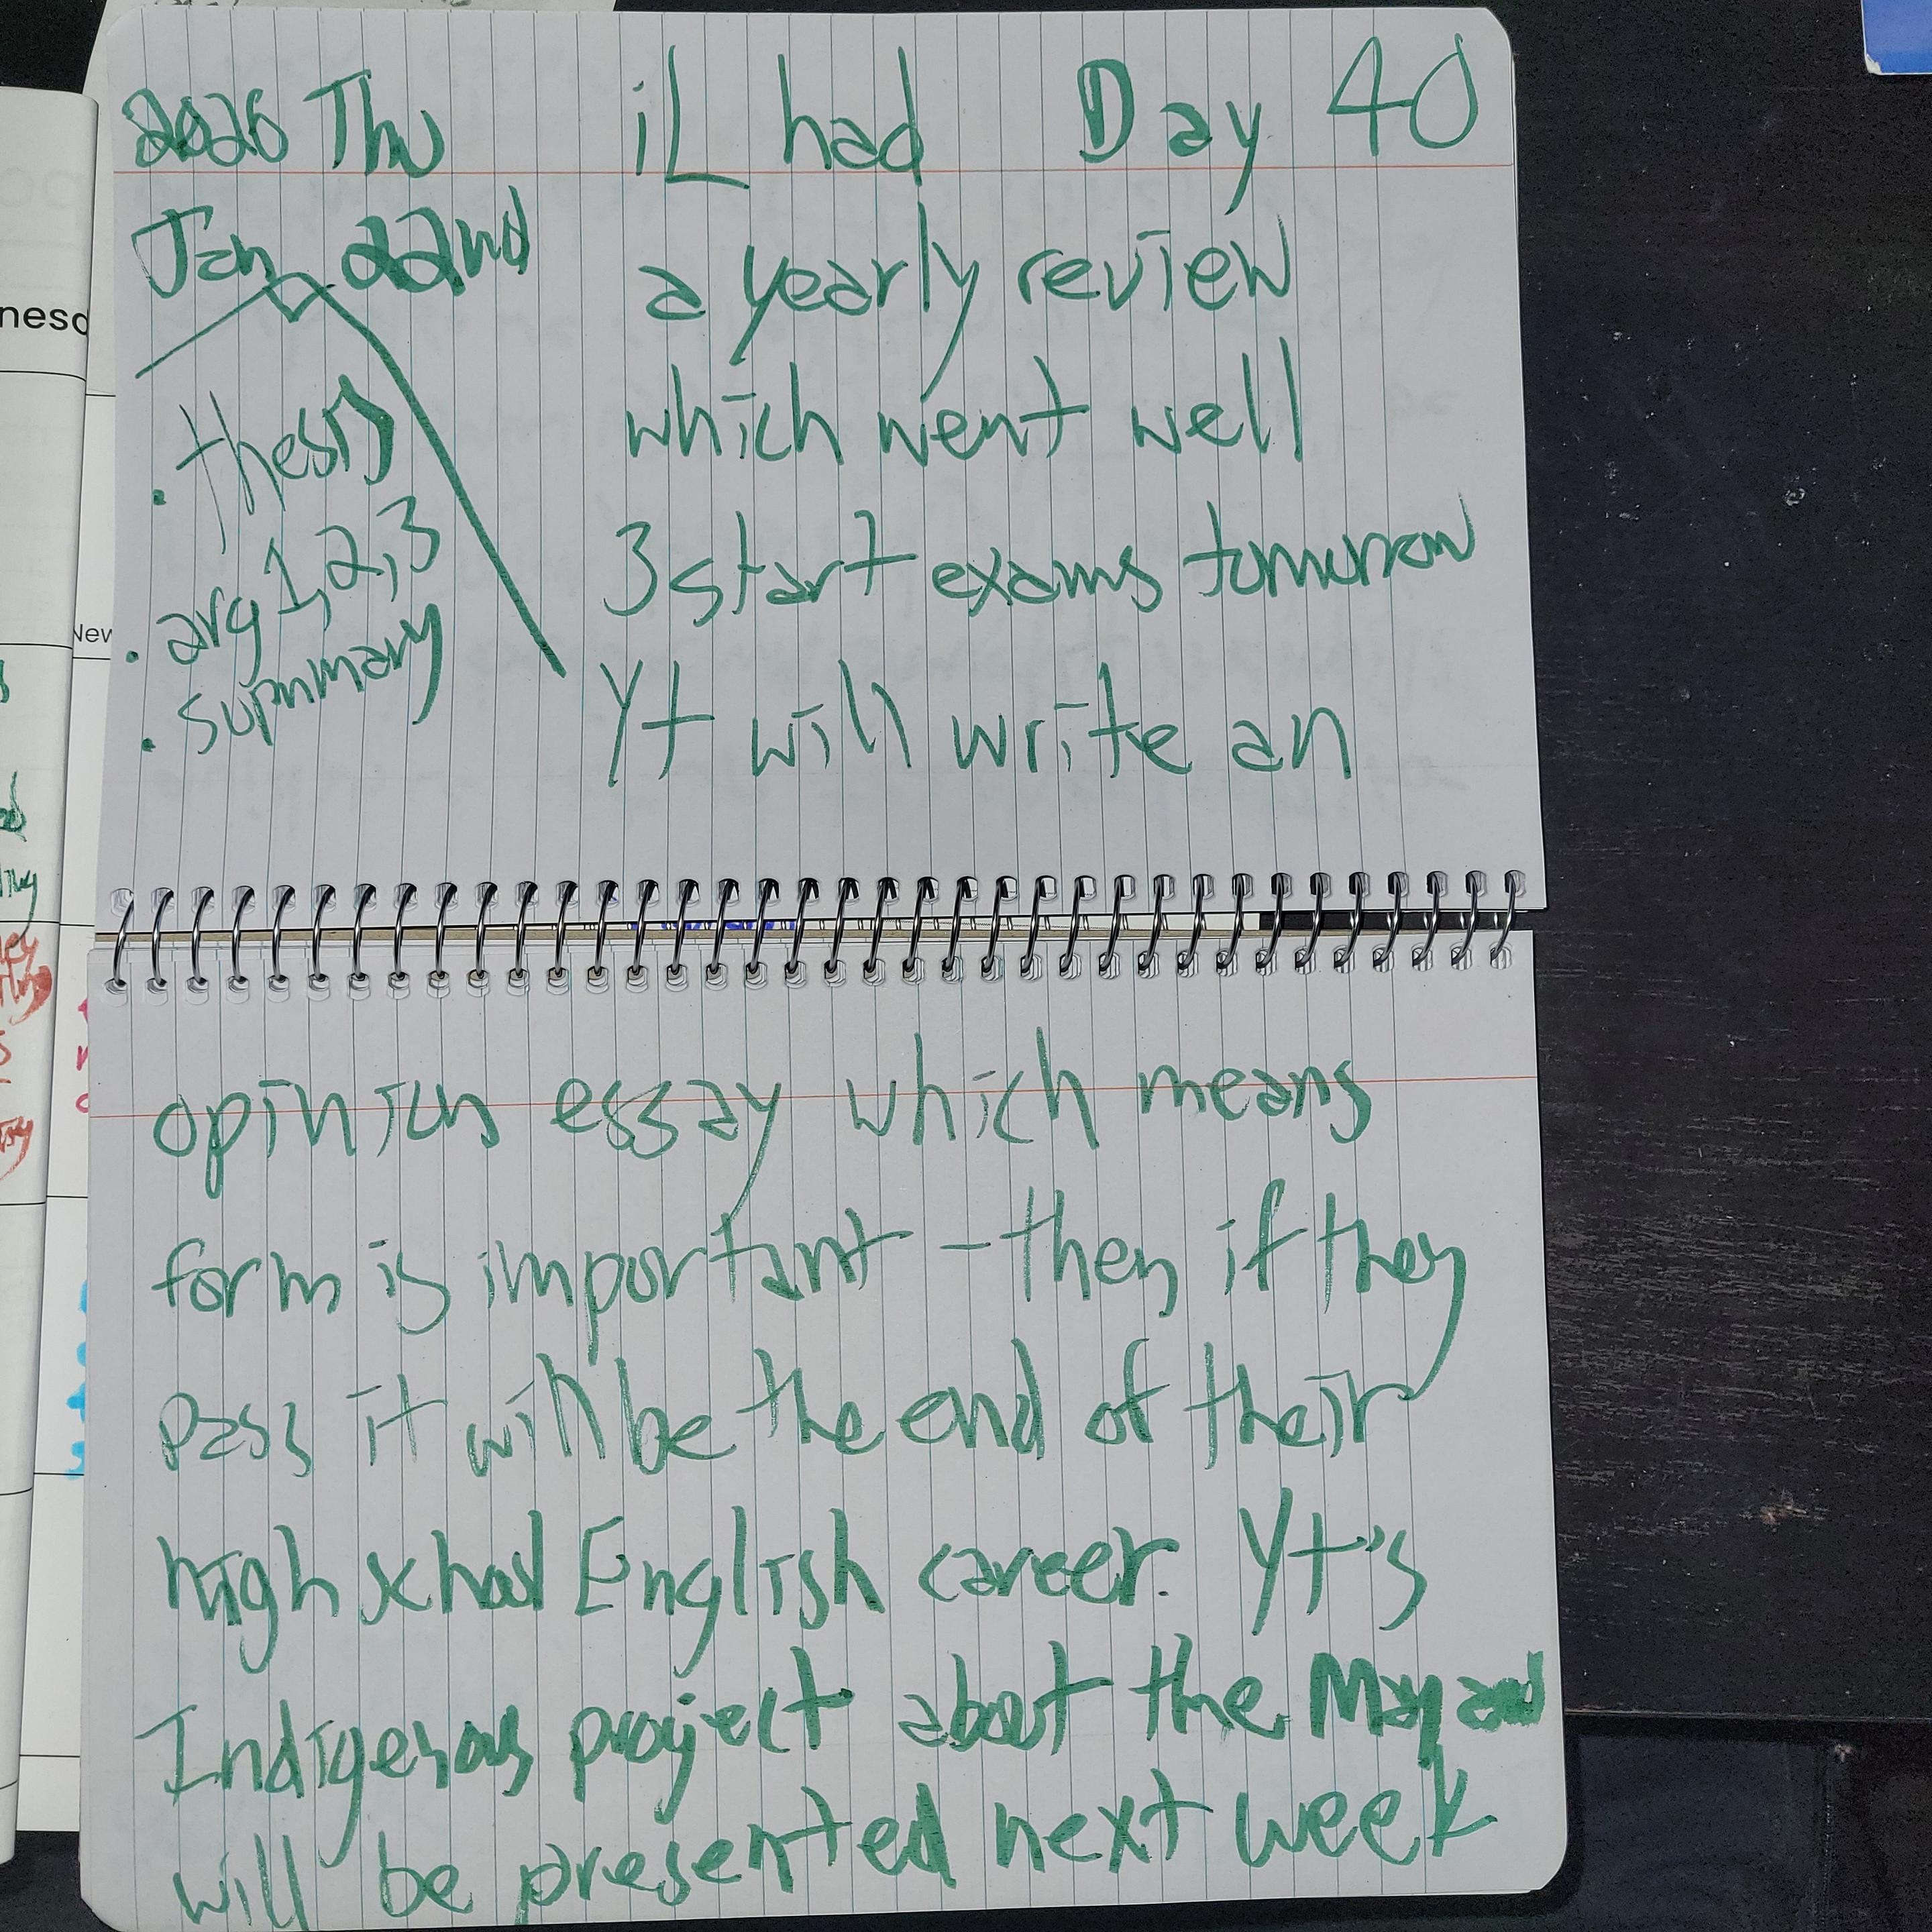 2026 Thu
Jan 22nd
iL had Day 40
a yearly review
which went well
3 start exams tomorrow
Yt will write an
. thesis
. arg 1,2,3
. summary
opinion essay which means
form is important - then if they
pass it will be the end of their
high school English career. Yt's
Indigenous project about the May and
will be presented next week
nesd
New